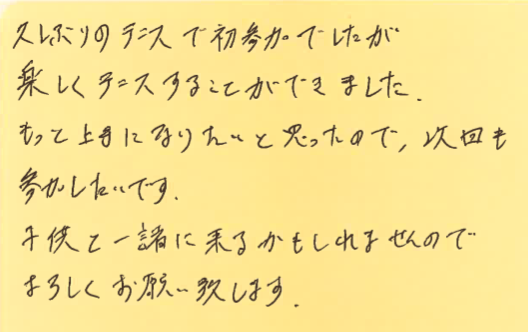 久しぶりのテニスで初参加でしたが
楽しくテニスすることができました.
もっと上手になりたいと思ったので,次回も
参加したいです.
子供と一諸に来るかもしれませんので
よろしくお願い致します.